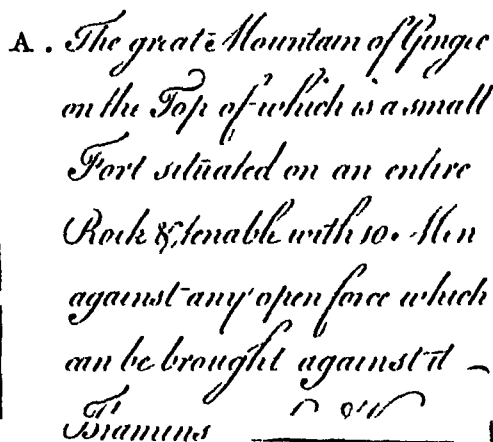 A. The great Mountain of Gingee
on the Top of which is a small
Fort situated on an entire
Rock & tenable with 10. Men
against any open force which
can be brought against it
Bramins